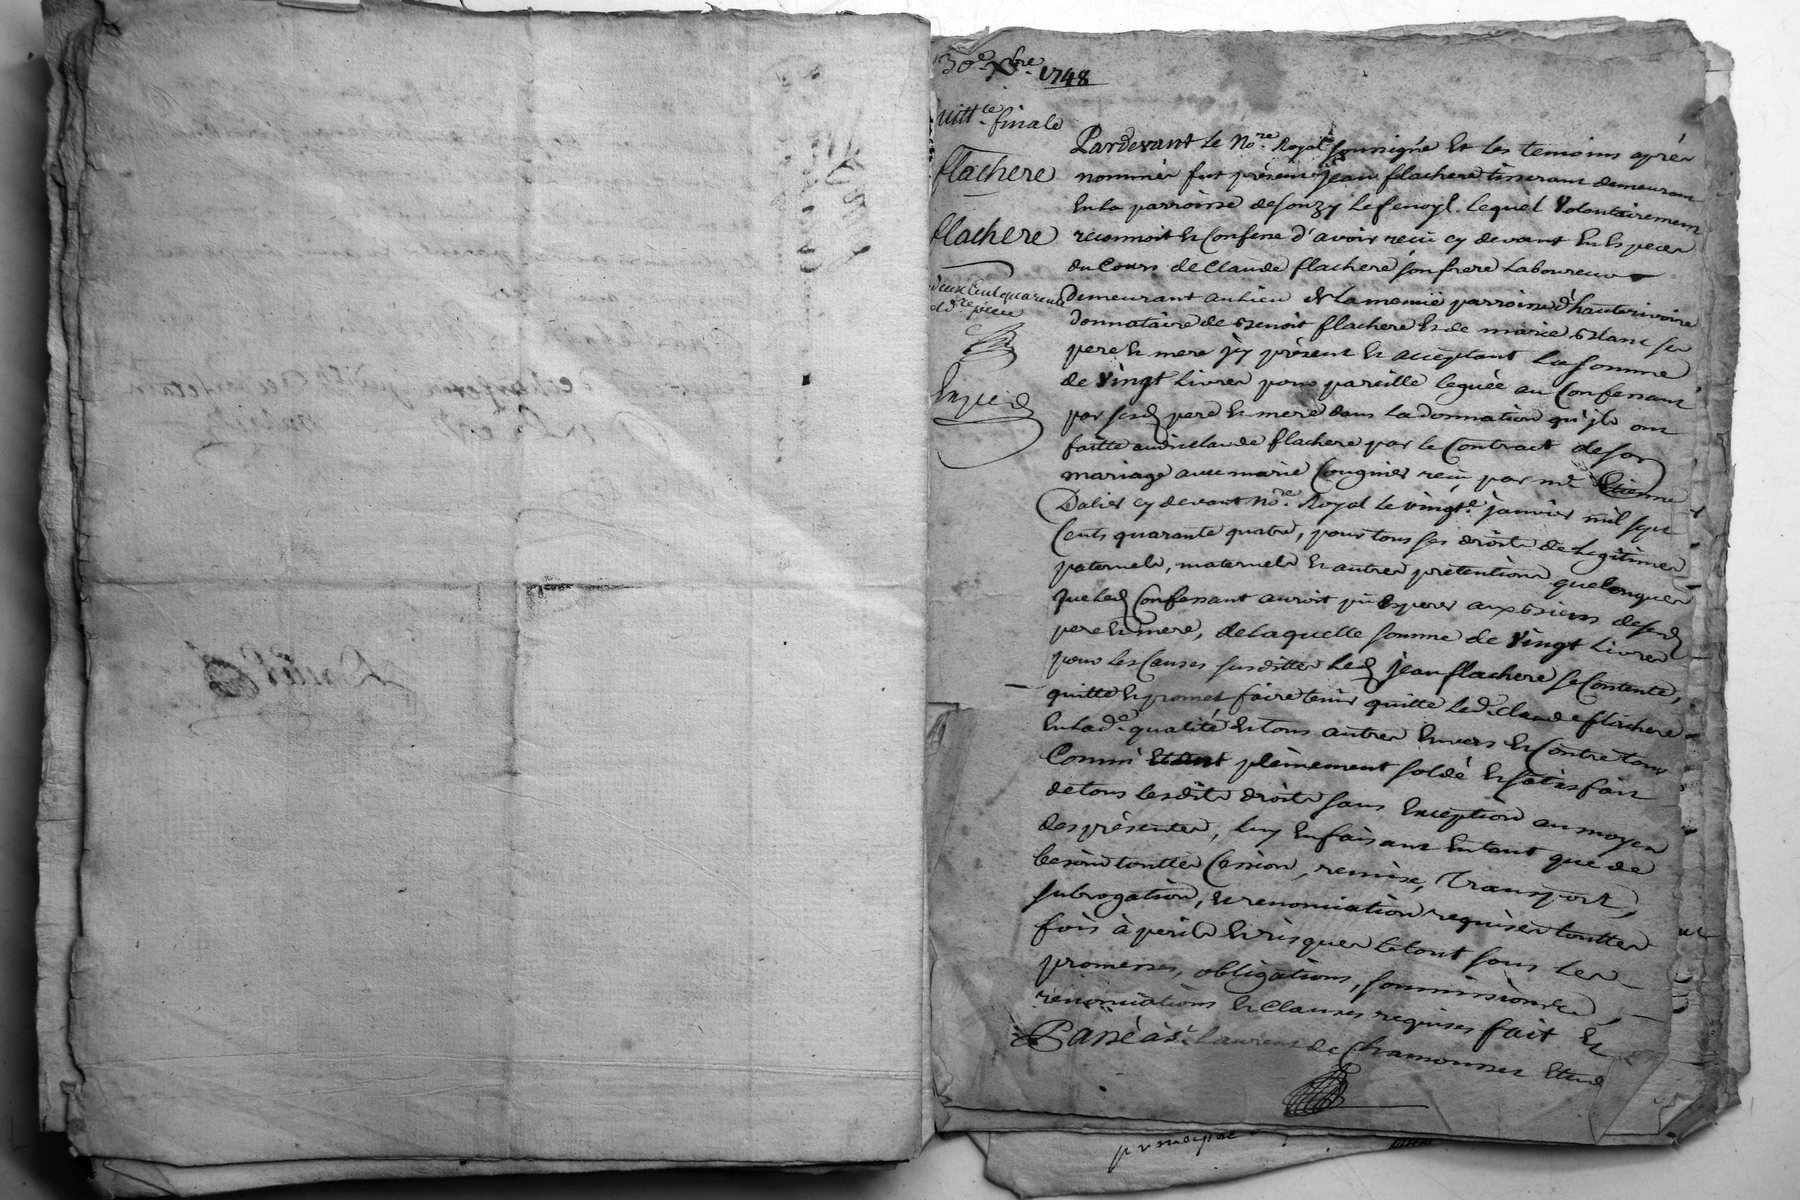 30e Xbre 1748
quittce finale
flachere
flachere
deux Cent quarante
Expied
Pardevant Le Nore. Royal soussigné Et Les temoins après
nommés fut présent jean flachere tisserant demeurant
En La parroisse de Souzy Lefenoyl. Lequel Volontairement
reconnoit Et Confesse d'avoir reçu cy devant En Especes
du Cours de Claude flachere son frere Laboureur
demeurant au Lieu Et La meme parroisse d'hauterivoire
donnataire de Benoit flachere Et de marie Blanc ses
pere Et mere jcy présent Et acceptant La somme
de Vingt Livres pour pareille leguée au Confessant
par sesd pere Et mere dans La donnation qu'jls ont
faitte aud. Claude flachere par le Contract de son
mariage avec marie Cougnier reçu par me Etienne
Dalier cy devant Nore. Royal Le vingte. janvier mil sept
Cents quarante quatre, pour tous ses droits de Legitimes
paternels, maternels Et autres prétentions quelconques
que Led Confessant auroit pû Esperer aux Biens de sesd
pere Et mere, de Laquelle somme de Vingt Livres
pour Les Causes susdittes Led jean flachere se Contente,
quitte Et promet faire tenir quitte Led. Claude flachere
En Lade. qualité Et tous autres Envers Et Contre tous
Comm' Etant pleinement soldé Et satisfait
de tous Lesdits droits sans Exception au moyen
des présentes, luy En faisant En tant que de
besoin touttes Cession, remise, Transport,
subrogation, Et renonciation requises touttes
fois à périls Et risques Le tout sous Les
promesses, obligations, soummissions,
renonciations Et Clauses requises fait Et
Passé à St. Laurent de Chamousset Etude